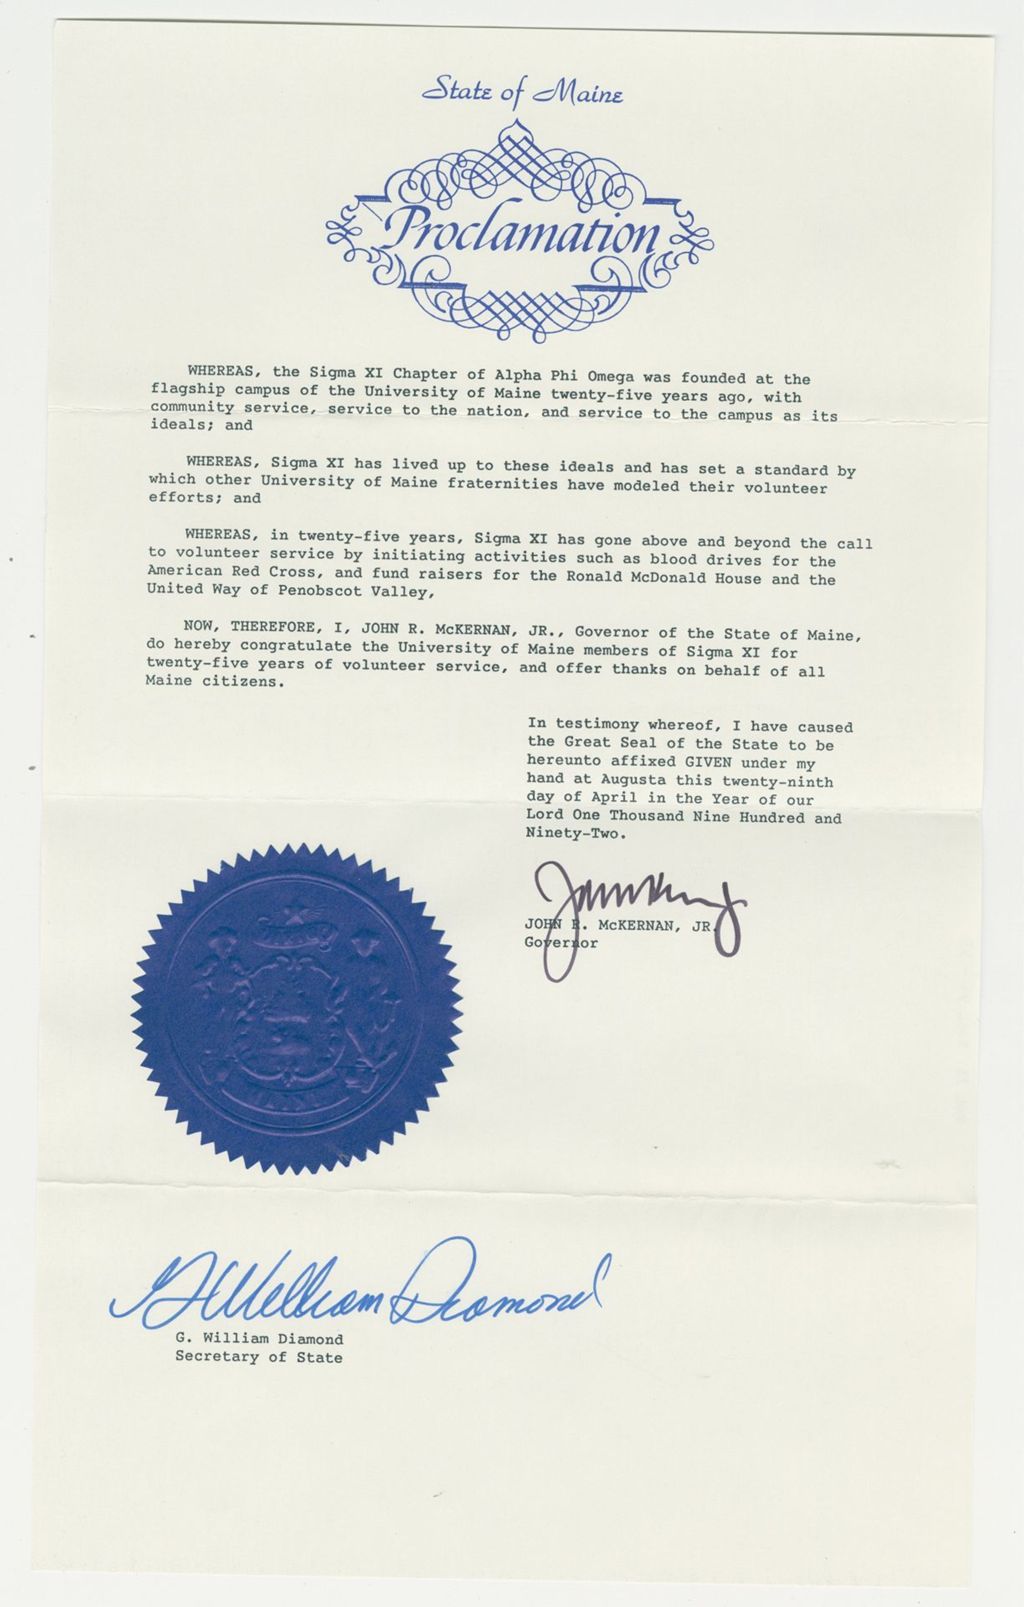 State of Maine
Proclamation
WHEREAS, the Sigma XI Chapter of Alpha Phi Omega was founded at the
flagship campus of the University of Maine twenty-five years ago, with
community service, service to the nation, and service to the campus as its
ideals; and
WHEREAS, Sigma XI has lived up to these ideals and has set a standard by
which other University of Maine fraternities have modeled their volunteer
efforts; and
WHEREAS, in twenty-five years, Sigma XI has gone above and beyond the call
to volunteer service by initiating activities such as blood drives for the
American Red Cross, and fund raisers for the Ronald McDonald House and the
United Way of Penobscot Valley,
NOW, THEREFORE, I, JOHN R. McKERNAN, JR., Governor of the State of Maine,
do hereby congratulate the University of Maine members of Sigma XI for
twenty-five years of volunteer service, and offer thanks on behalf of all
Maine citizens.
In testimony whereof, I have caused
the Great Seal of the State to be
hereunto affixed GIVEN under my
hand at Augusta this twenty-ninth
day of April in the Year of our
Lord One Thousand Nine Hundred and
Ninety-Two.
JOHN R. McKERNAN, JR.
Governor
MAINE
G William Diamond
G. William Diamond
Secretary of State